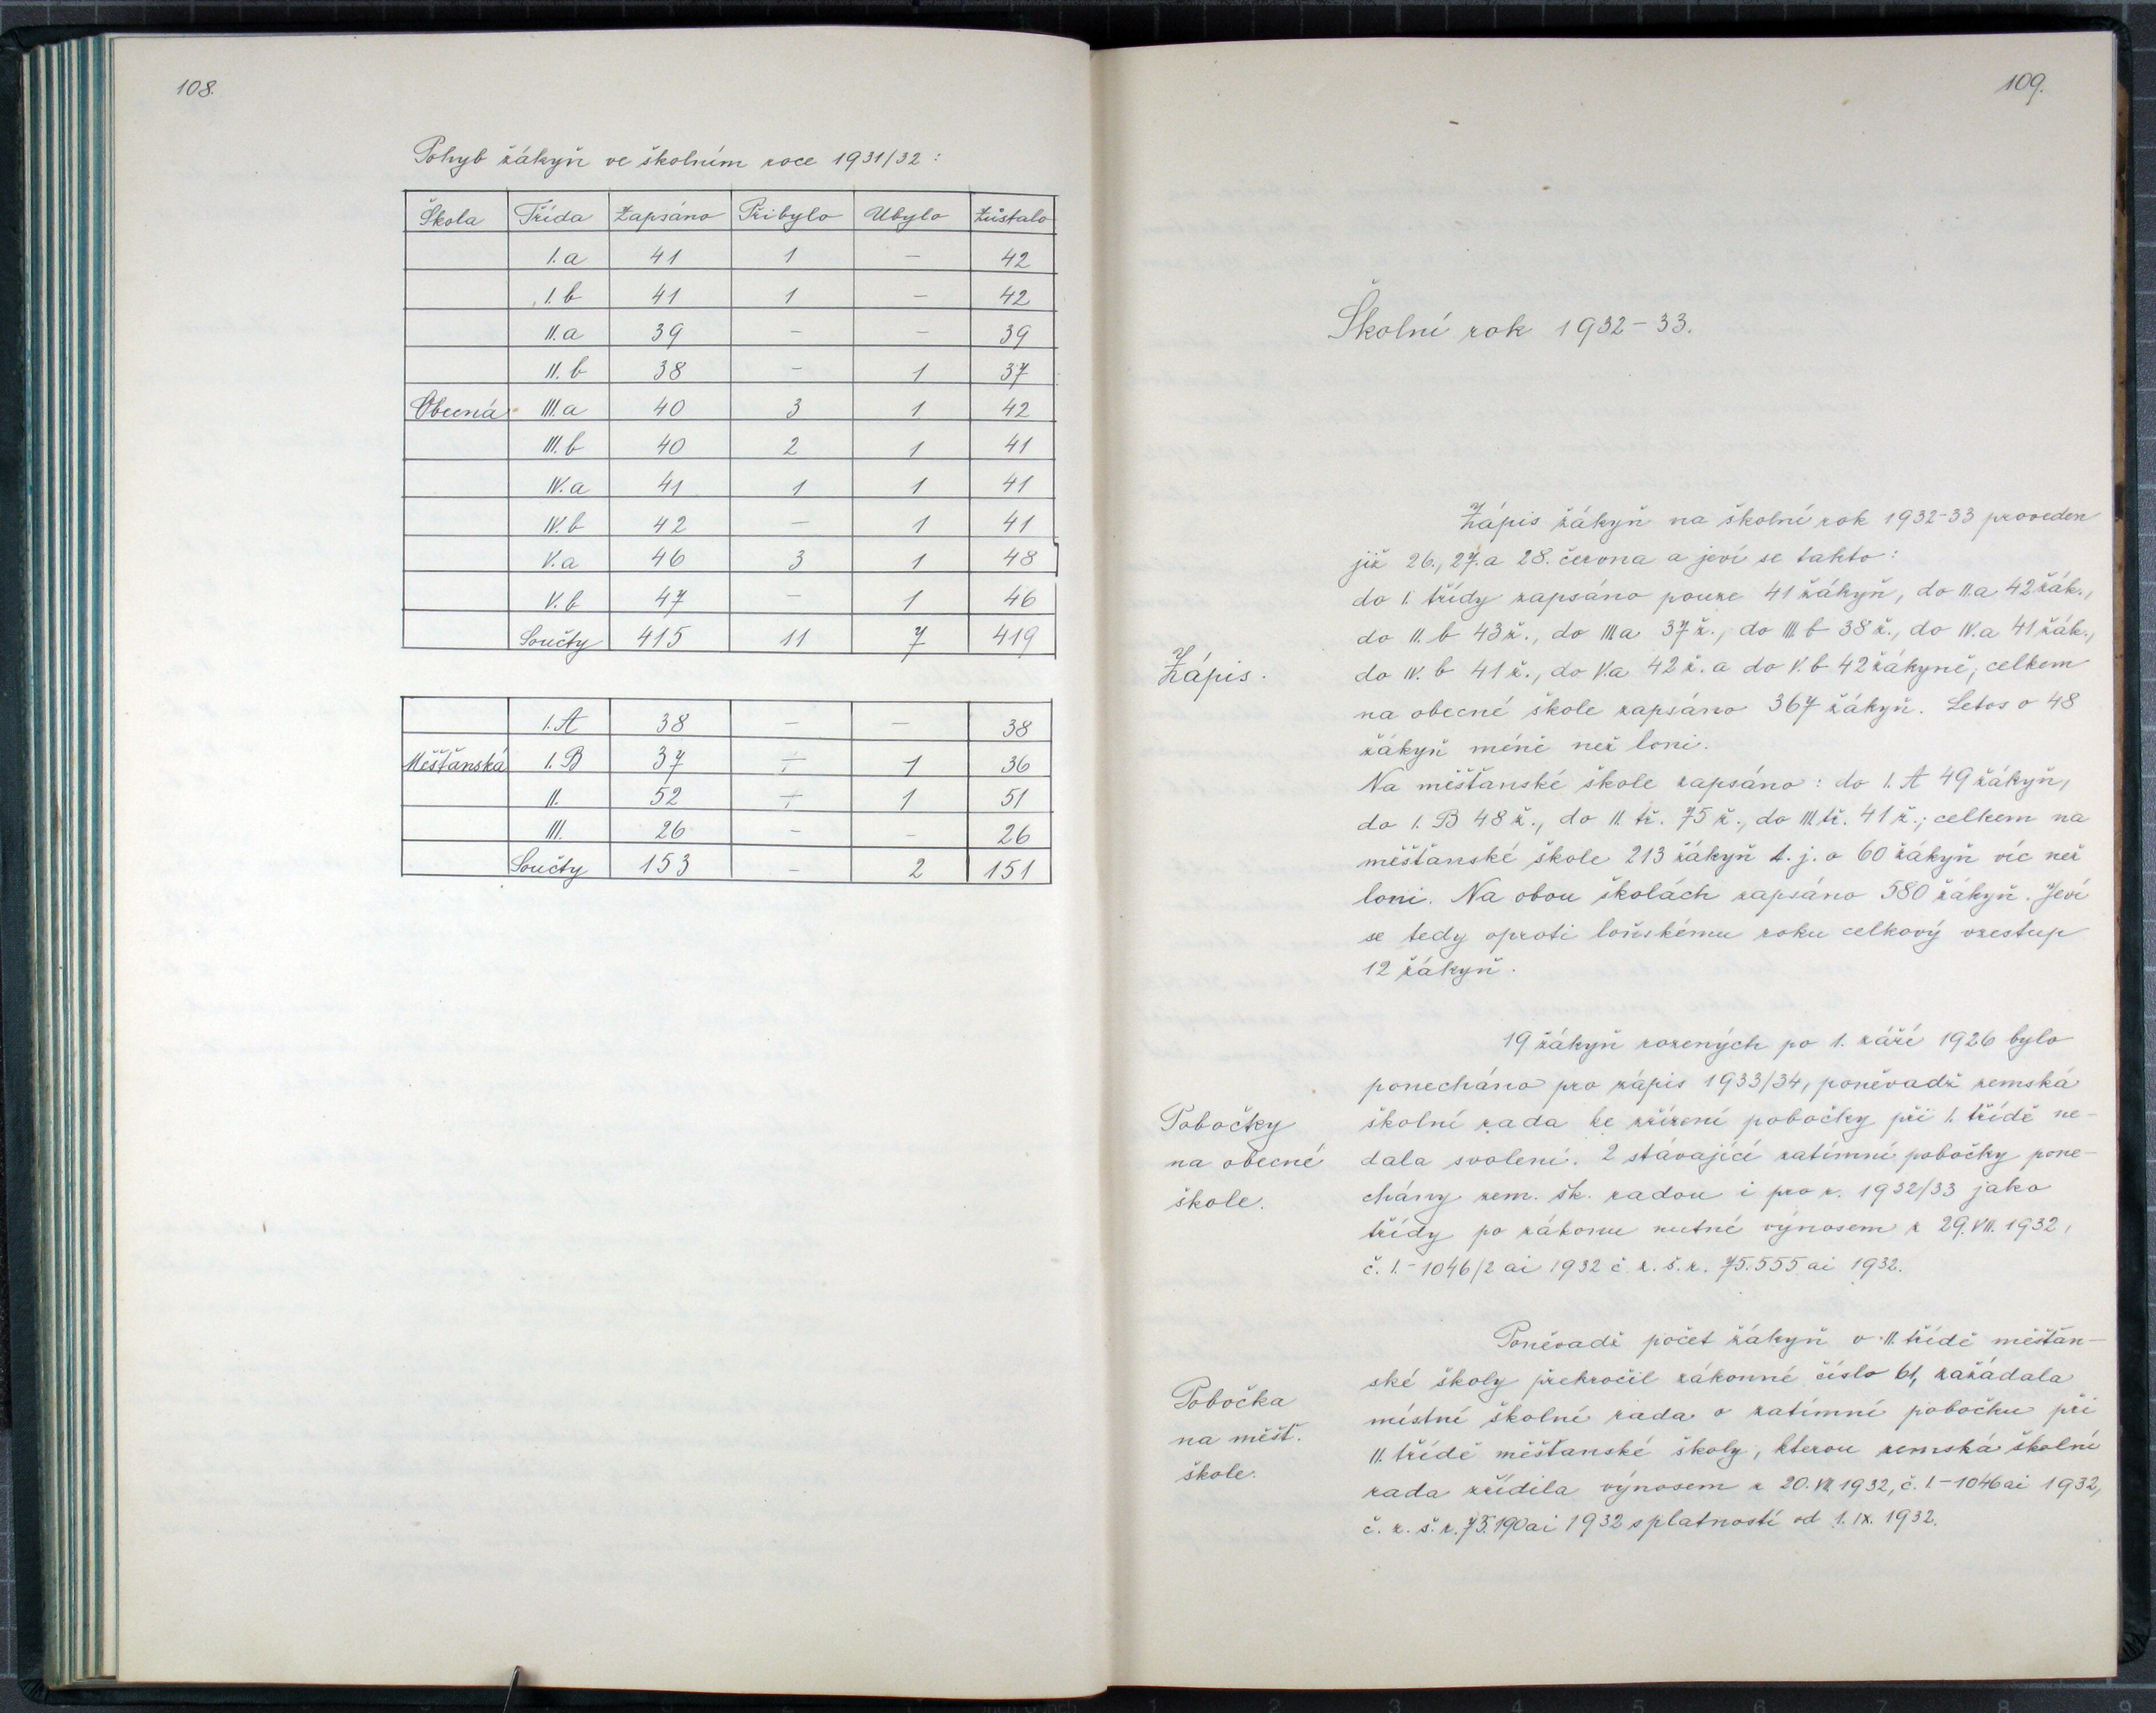 108.
Pohyb žákyň ve školním roce 1931/32 :
Škola Třída Zapsáno Přibylo Ubylo Zůstalo
I. a 41 1 — 42
I. b 41 1 — 42
II. a 39 — — 39
II. b 38 — 1 37
Obecná III. a 40 3 1 42
III. b 40 2 1 41
IV. a 41 1 1 41
IV. b 42 — 1 41
V. a 46 3 1 48
V. b 47 — 1 46
Součty 415 11 7 419
I. A 38 — — 38
Měšťanská I. B 37 ÷ 1 36
II. 52 ÷ 1 51
III. 26 – – 26
Součty 153 – 2 151
109.
Školní rok 1932–33.
Zápis žákyň na školní rok 1932–33 proveden
již 26., 27. a 28. června a jeví se takto:
do I. třídy zapsáno pouze 41 žákyň, do II.a 42 žák.,
do II. b 43 ž., do III a 37 ž., do III. b 38 ž., do IV. a 41 žák.,
Zápis. do IV. b 41 ž., do V.a 42 ž. a do V. b 42 žákyně, celkem
na obecné škole zapsáno 367 žákyň. Letos o 48
žákyň méně než loni.
Na měšťanské škole zapsáno: do I. A 49 žákyň,
do I. B 48 ž., do II. tř. 75 ž., do III tř. 41 ž.; celkem na
měšťanské škole 213 žákyň t. j. o 60 žákyň víc než
loni. Na obou školách zapsáno 580 žákyň. Jeví
se tedy oproti loňskému roku celkový vzestup
12 žákyň.
19 žákyň rozených po 1. září 1926 bylo
ponecháno pro zápis 1933/34, poněvadž zemská
Pobočky školní rada ke zřízení pobočky při I. třídě ne-
na obecné dala svolení. 2 stávající zatímní pobočky pone-
škole. chány zem. šk. radou i pro r. 1932/33 jako
třídy po zákonu nutné výnosem z 29. VII. 1932,
č. I.–1046/2 ai 1932 č z. š. r. 75.555 ai 1932.
Poněvadž počet žákyň v II. třídě měšťan-
ské školy překročil zákonné číslo 61, zažádala
Pobočka místní školní rada o zatímní pobočku při
na měšť. II. třídě měšťanské školy, kterou zemská školní
škole. rada zřídila výnosem z 20. VII. 1932, č. I.–1046 ai 1932,
č. z. š. r. 73.190 ai 1932 s platností od 1. IX. 1932.